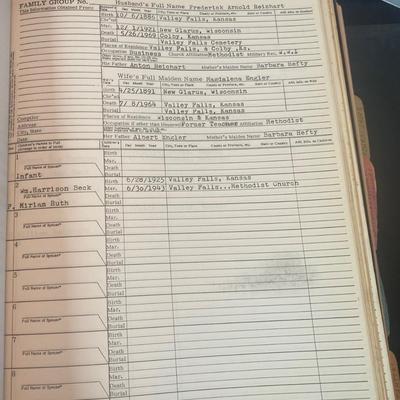 FAMILY GROUP No.
Husband's Full Name Frederick Arnold Reichart
This Information Obtained From:
Husband's Data Day Month Year City, Town or Place County or Province, etc. State or Country Add. Info. on Husband
Birth 10/ 6/1880 Valley Falls, Kansas
Chr'nd
Mar. 12/ 1/1921 New Glarus, Wisconsin
Death 5/26/1969 Colby, Kansas
Burial Valley Falls Cemetery
Places of Residence Valley Falls, & Colby ,Ks.
Occupation Business Church Affiliation Methodist Military Rec. W.W.1
His Father Anton Reichart Mother's Maiden Name Barbara Hefty
Wife's Full Maiden Name Magdalena Engler
Wife's Data Day Month Year City, Town or Place County or Province, etc. State or Country Add. Info. on Wife
Birth 4/25/1891 New Glarus, Wisconsin
Chr'nd
Death 7/ 8/1964 Valley Falls, Kansas
Burial Valley Falls, Kansas
Compiler Places of Residence Wisconsin & Kansas
Address Occupation if other than Housewife Former Teacher Church Affiliation Methodist
City, State
Date Her Father Albert Engler Mother's Maiden Name Barbara Hefty
Sex Children's Names in Full (Arrange in order of birth) Children's Data Day Month Year City, Town or Place County or Province, etc. State or Country Add. Info. on Children
1 Birth
Infant Mar.
Full Name of Spouse* Death
Burial
2 Birth 6/28/1925 Valley Falls, Kansas
Wm.Harrison Beck Mar. 6/30/1943 Valley Falls...Methodist Church
Full Name of Spouse* Death
F. Miriam Ruth Burial
3 Birth
Mar.
Full Name of Spouse* Death
Burial
4 Birth
Mar.
Full Name of Spouse* Death
Burial
5 Birth
Mar.
Full Name of Spouse* Death
Burial
6 Birth
Mar.
Full Name of Spouse* Death
Burial
7 Birth
Mar.
Full Name of Spouse* Death
Burial
8 Birth
Mar.
Full Name of Spouse* Death
Burial